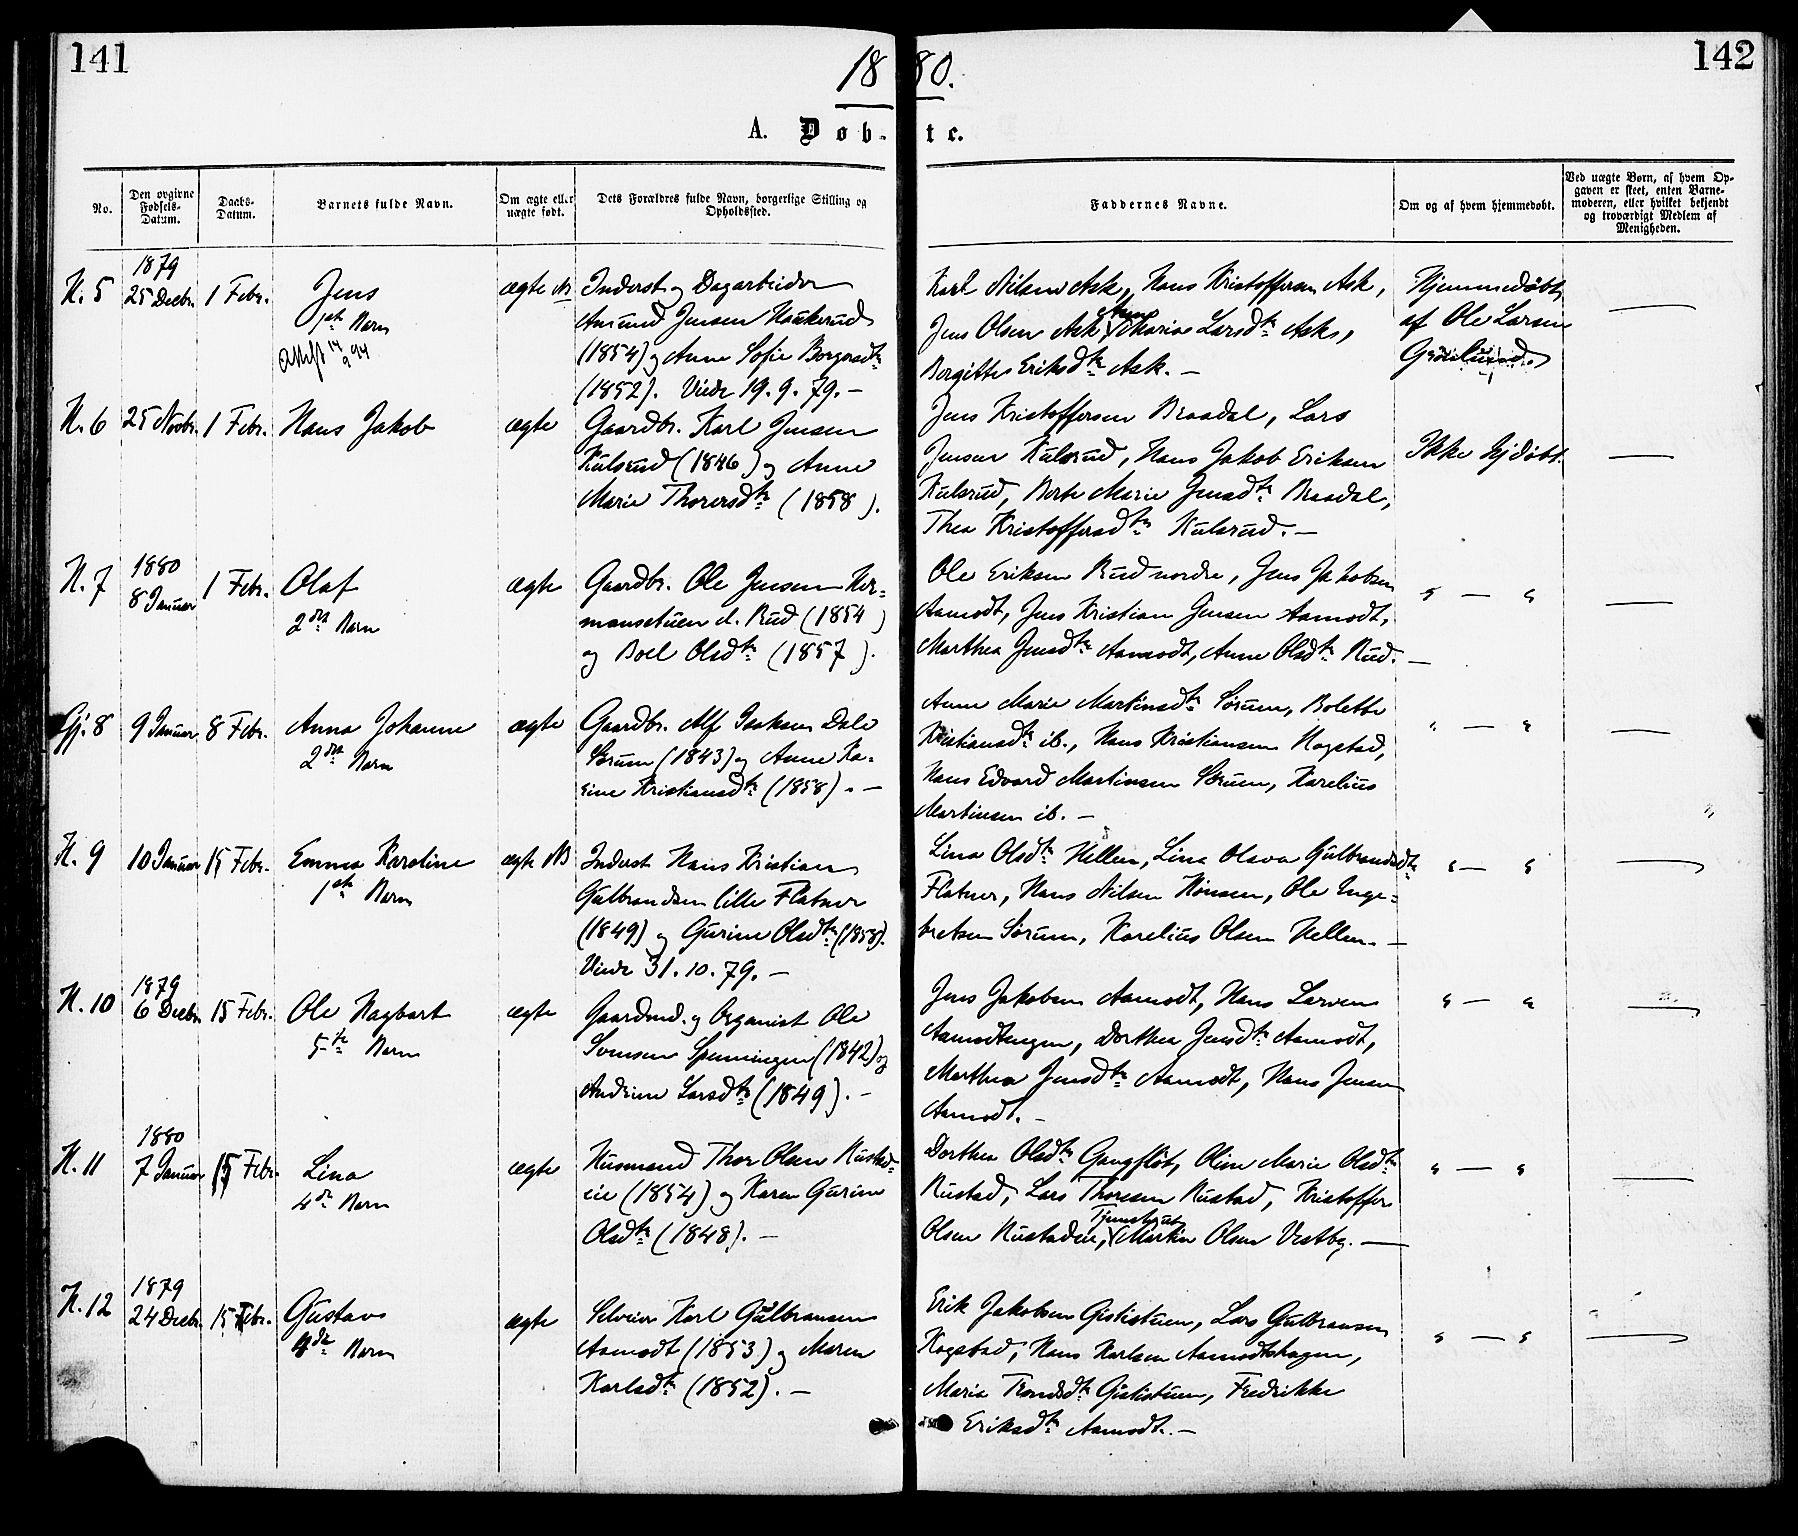 141
142
1880.
A. Døb-te.
No.
Den opgivne Fødsels-Datum.
Daabs-Datum.
Barnets fulde Navn.
Om ægte eller uægte født.
Dets Forældres fulde Navn, borgerlige Stilling og Opholdssted.
Faddernes Navne.
Om og af hvem hjemmedøbt.
Ved uægte Børn, af hvem Opgaven er skeet, enten Barnemoderen, eller hvilket bekjendt og troværdigt Medlem af Menigheden.
1879
N. 5 25 Decbr. 1 Febr. Jens ægte
1ste Barn
Attest 14/2 94
Inderst og Dagarbeider
Amund Jensen Haukerud
(1854) og Anne Sofie Borgersdtr
(1852). Viede 19. 9. 79. —
Karl Nilsen Ask, Hans Kristoffersen Ask,
Jens Olsen Ask, Maria Larsdtr Ask,
Borgitte Eriksdtr Ask. —
Hjemmedøbt
af Ole Larsen
N. 6 25 Novbr. 1 Febr. Hans Jakob ægte
Gaardbr. Karl Jensen
Kulsrud (1846) og Anne
Marie Thorersdtr (1858).
Jens Kristoffersen Braadal, Lars
Jensen Kulsrud, Hans Jakob Eriksen
Kulsrud, Berte Marie Jensdtr Braadal,
Thea Kristoffersdtr Kulsrud. —
Ikke Hjdøbt.
1880
N. 7 8 Januar 1 Febr. Olaf ægte
2det Barn
Gaardbr. Ole Jensen Her-
manstuen d. Rud (1854)
og Boel Olsdtr (1857).
Ole Eriksen Rud nordre, Jens Jakobsen
Aamodt, Jens Kristian Jensen Aamodt,
Marthea Jensdtr Aamodt, Anne Olsdtr Rud. —
" — "
Gj. 8 9 Januar 8 Febr. Anna Johanne ægte
2det Barn
Gaardbr. Alf Isaksen Dale
Sørum (1843) og Anne Ka-
rine Kristiansdtr (1858). —
Anne Marie Martinsdtr Sørum, Bolette
Kristiansdtr ib., Hans Kristiansen Hogstad,
Hans Edvard Martinsen Sørum, Karelius
Martinsen ib. —
" — "
N. 9 10 Januar 15 Febr. Emma Karoline ægte NB
1ste Barn
Inderst Hans Kristian
Gulbrandsen lille Flatner
(1849) og Gurine Olsdtr (1858).
Viede 31. 10. 79. —
Lina Olsdtr Hellen, Lina Olava Gulbrandsdtr
Flatner, Hans Nilsen Hønsen, Ole Inge-
bretsen Sørum, Karelius Olsen Hellen. —
" — "
1879
N. 10 6 Decbr. 15 Febr. Ole Hagbart ægte
5te Barn
Gaardmd. og Organist Ole
Svensen Spenningen (1842) og
Andrine Larsdtr (1849). —
Jens Jakobsen Aamodt, Hans Larsen
Aamodtengen, Dorthea Jensdtr Aamodt,
Marthea Jensdtr Aamodt, Hans Jensen
Aamodt. —
" — "
1880
N. 11 7 Januar 15 Febr. Lina ægte
4de Barn
Husmand Thor Olsen Rustad-
eie (1854) og Karen Gurine
Olsdtr (1848). —
Dorthea Olsdtr Gangfløt, Oline Marie Olsdtr
Rustad, Lars Thoresen Rustad, Kristoffer
Olsen Rustadeie, Martin Olsen Vestby. —
" — "
1879
N. 12 24 Decbr. 15 Febr. Gustav ægte
4de Barn
Selveier Karl Gulbransen
Aamodt (1853) og Maren
Karlsdtr (1852). —
Erik Jakobsen Gististuen, Lars Gulbransen
Kogstad, Hans Karlsen Aamodtshagen,
Maria Trondsdtr Gististuen, Fredrikke
Eriksdtr Aamodt. —
" — "